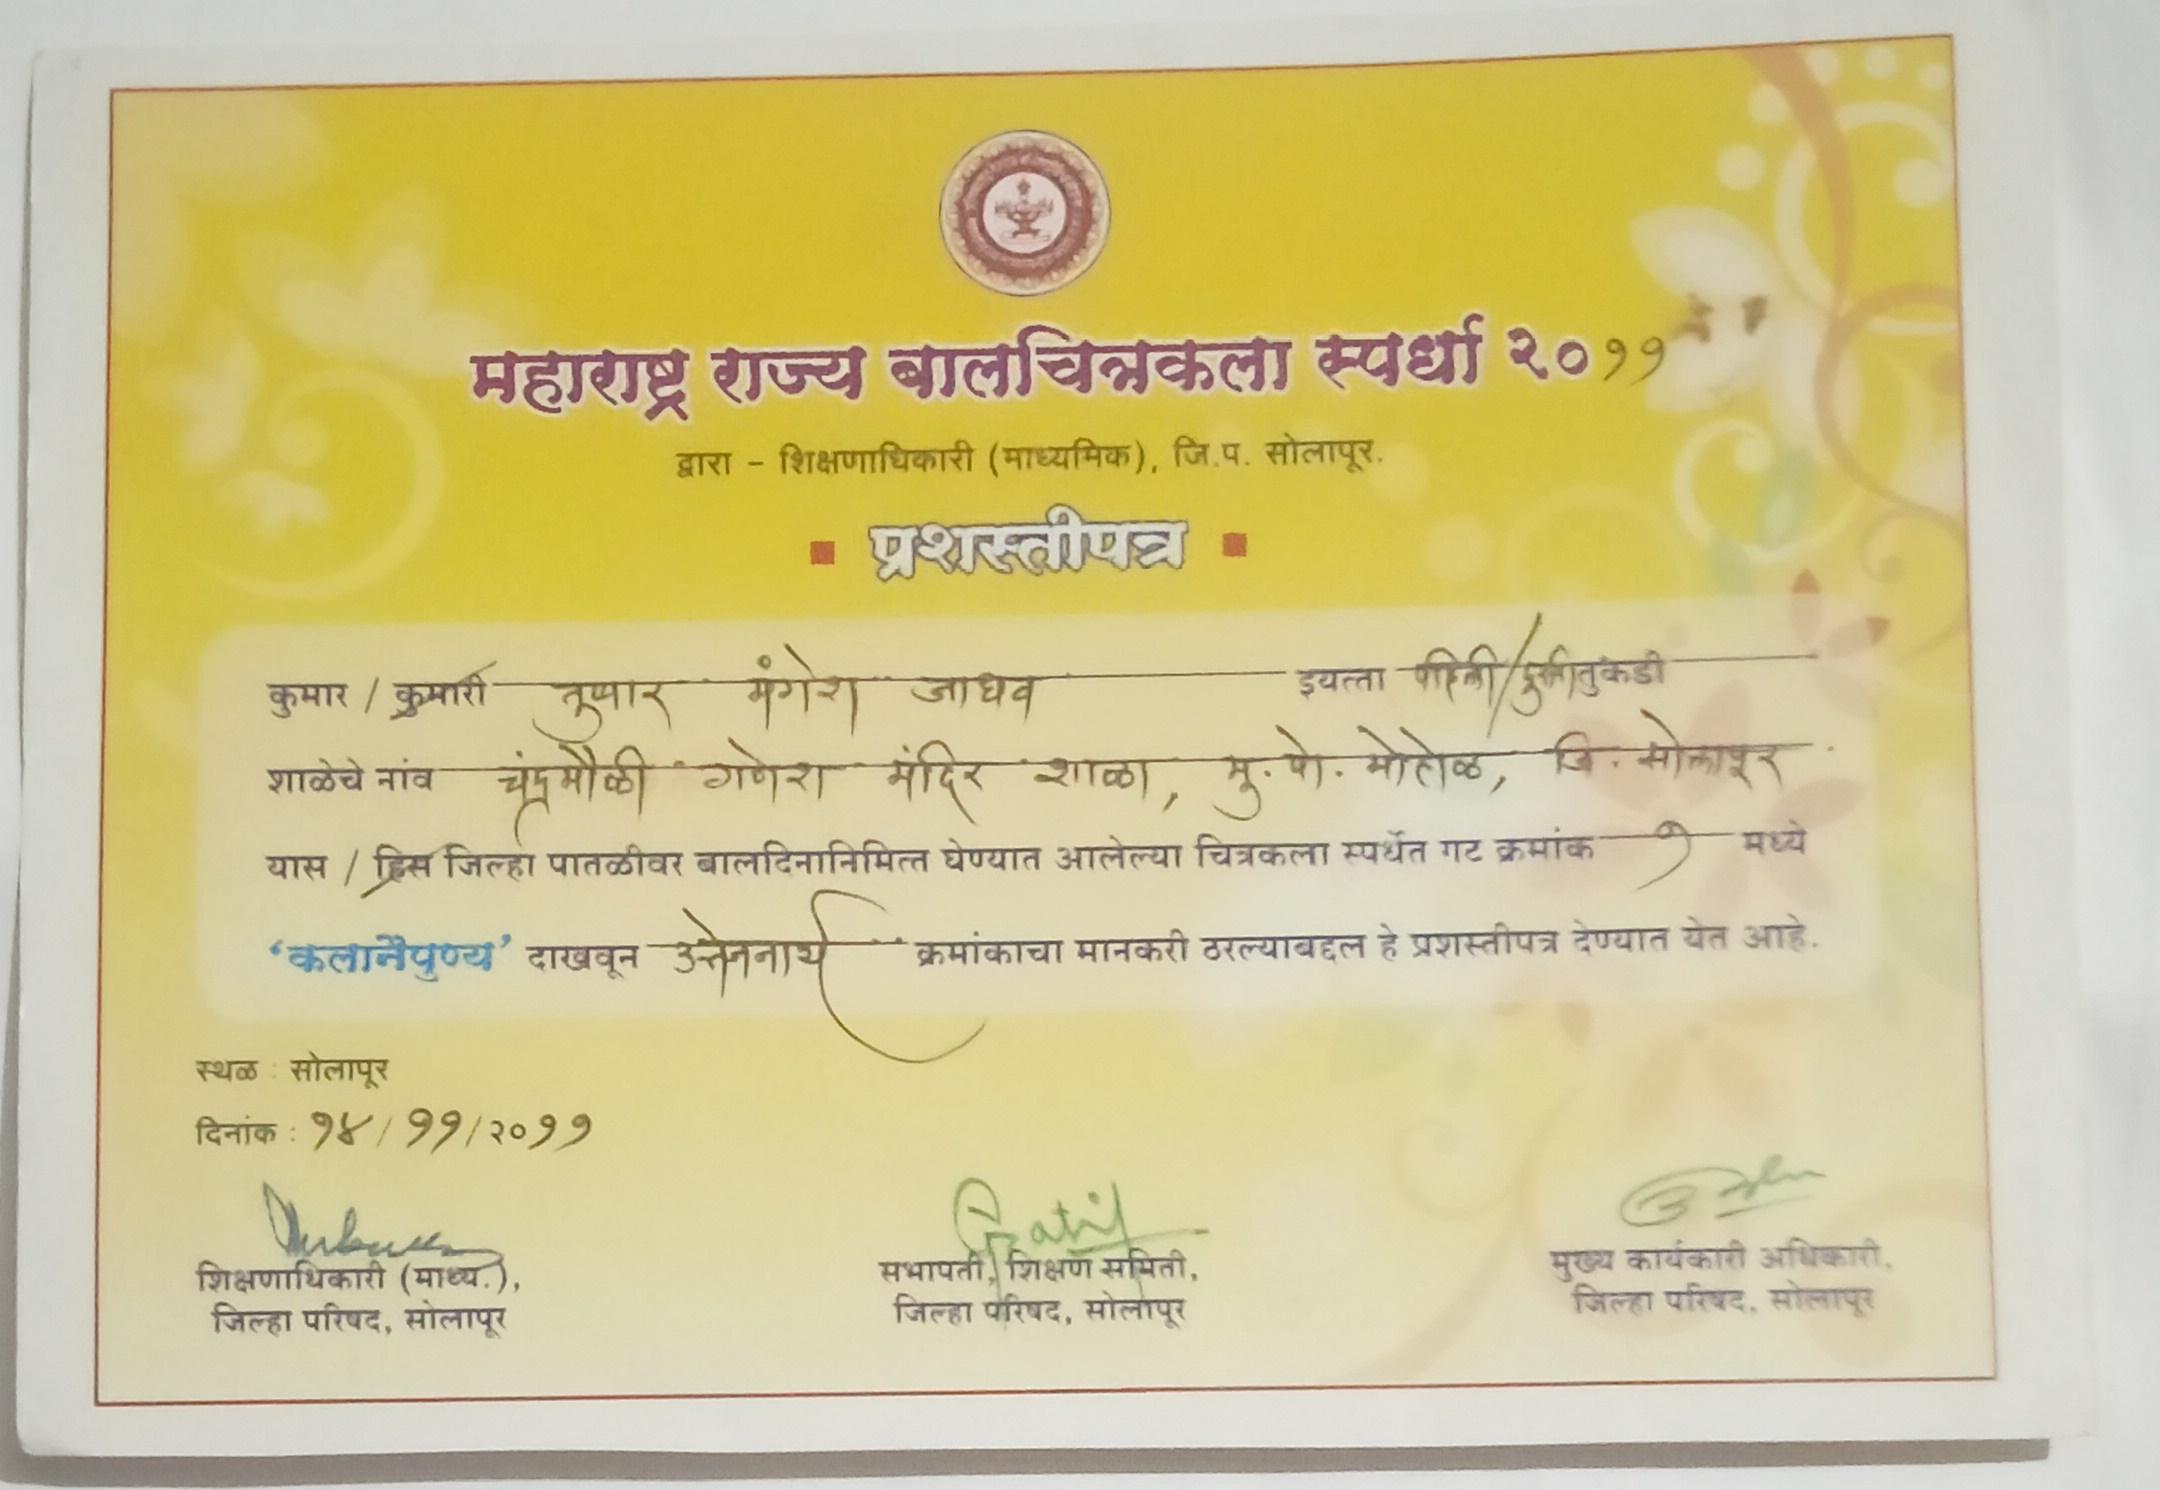 महाराष्ट्र राज्य बालचित्रकला स्पर्धा २०११
द्वारा - शिक्षणाधिकारी (माध्यमिक), जि.प. सोलापूर.
प्रशस्तीपत्र
कुमार / कुमारी तुषार मंगेश जाधव इयत्ता पहिली/दुसरी तुकडी
शाळेचे नांव चंद्रमौळी गणेश मंदिर शाळा, मु. पो. मोहोळ, जि. सोलापूर
यास / हिस जिल्हा पातळीवर बालदिनानिमित्त घेण्यात आलेल्या चित्रकला स्पर्धेत गट क्रमांक १ मध्ये
‘कलानैपुण्य’ दाखवून उत्तेजनार्थ क्रमांकाचा मानकरी ठरल्याबद्दल हे प्रशस्तीपत्र देण्यात येत आहे.
स्थळ : सोलापूर
दिनांक : १४/११/२०११
शिक्षणाधिकारी (माध्य.),
जिल्हा परिषद, सोलापूर
सभापती, शिक्षण समिती,
जिल्हा परिषद, सोलापूर
मुख्य कार्यकारी अधिकारी,
जिल्हा परिषद, सोलापूर